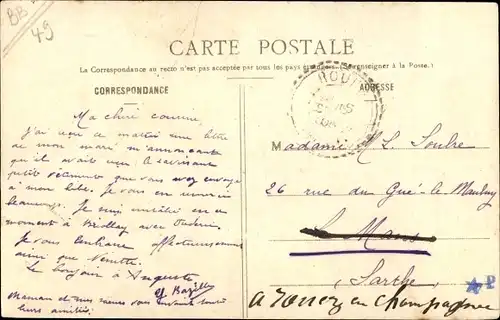 BB
49
CARTE POSTALE
La Correspondance au recto n'est pas acceptée par tous les pays étrangers (Se renseigner à la Poste.)
CORRESPONDANCE
ADRESSE
Ma chère cousine,
J'ai reçu ce matin une lettre
de mon mari m'annonçant
qu'il avait reçu le ravissant
petit vêtement que vous avez envoyé
à mon bébé. Je vous en remercie
beaucoup. Je suis installée en ce
moment à avec
Je vous embrasse affectueusement
ainsi que
Le bonjour à Auguste
Maman et mes vous envoient toutes
leurs amitiés.
Madame L. Soudre
26 rue du Gué-de-Maulny
Le Mans
Sarthe
à en Champagne